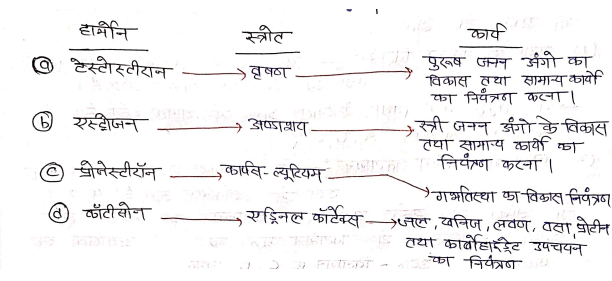 हार्मोन स्त्रोत कार्य
(a) टेस्टोस्टीरान → वृषण → पुरूष जनन अंगो का
विकास तथा सामान्य कार्यो
का नियंत्रण करना।
(b) एस्ट्रोजन → अण्डाशय → स्त्री जनन अंगो के विकास
तथा सामान्य कार्यो का
नियंत्रण करना।
(c) प्रोजेस्टीरॉन → कार्पस-ल्यूटियम → गर्भावस्था का विकास नियंत्रण
(d) कॉर्टीसोन → एड्रिनल कॉर्टेक्स → जल, खनिज, लवण, वसा, प्रोटीन
तथा कार्बोहाइड्रेट उपचयन
का नियंत्रण